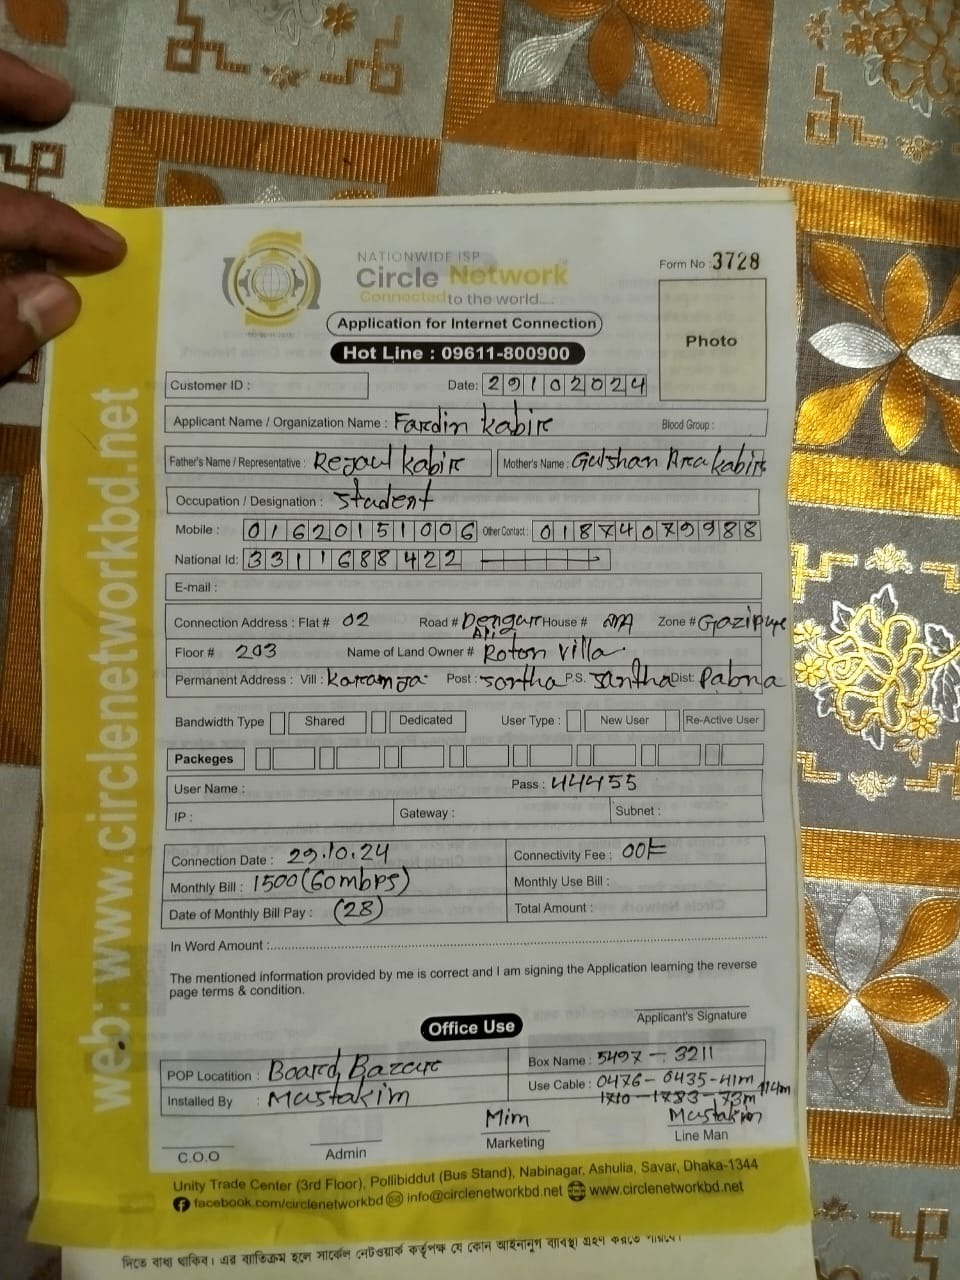 NATIONWIDE ISP
Circle Network
Connected to the world....
Form No : 3728
Application for Internet Connection
Hot Line : 09611-800900
Photo
Customer ID :
Date: 29102024
Applicant Name / Organization Name : Fardin kabir
Blood Group :
Father's Name / Representative : Rejaul kabir
Mother's Name : Gulshan Ara kabir
Occupation / Designation : Student
Mobile : 01620151006 Other Contact : 01874079988
National Id: 3311688422
E-mail :
Connection Address : Flat # 02 Road # House # Zone # Gazipur
Floor # 203 Name of Land Owner # Roton villa
Permanent Address : Vill : karamja Post : P.S. Dist: Pabna
Bandwidth Type Shared Dedicated User Type : New User Re-Active User
Packeges
User Name : Pass : 44455
IP : Gateway : Subnet :
Connection Date : 29.10.24 Connectivity Fee : 00/=
Monthly Bill : 1500 (60mbps) Monthly Use Bill :
Date of Monthly Bill Pay : (28) Total Amount :
In Word Amount :
The mentioned information provided by me is correct and I am signing the Application learning the reverse
page terms & condition.
Applicant's Signature
Office Use
POP Locatition : Board Bazar
Box Name : 5497 - 3211
Installed By : Mustakim
Use Cable : 0476 - 0435 - 41m
1710 - 1783 - 73m 114m
Mim Mustakim
C.O.O Admin Marketing Line Man
Unity Trade Center (3rd Floor), Pollibiddut (Bus Stand), Nabinagar, Ashulia, Savar, Dhaka-1344
facebook.com/circlenetworkbd info@circlenetworkbd.net www.circlenetworkbd.net
web: www.circlenetworkbd.net
দিতে বাধ্য থাকিব। এর ব্যতিক্রম হলে সার্কেল নেটওয়ার্ক কর্তৃপক্ষ যে কোন আইনানুগ ব্যবস্থা গ্রহণ করতে পারবে।